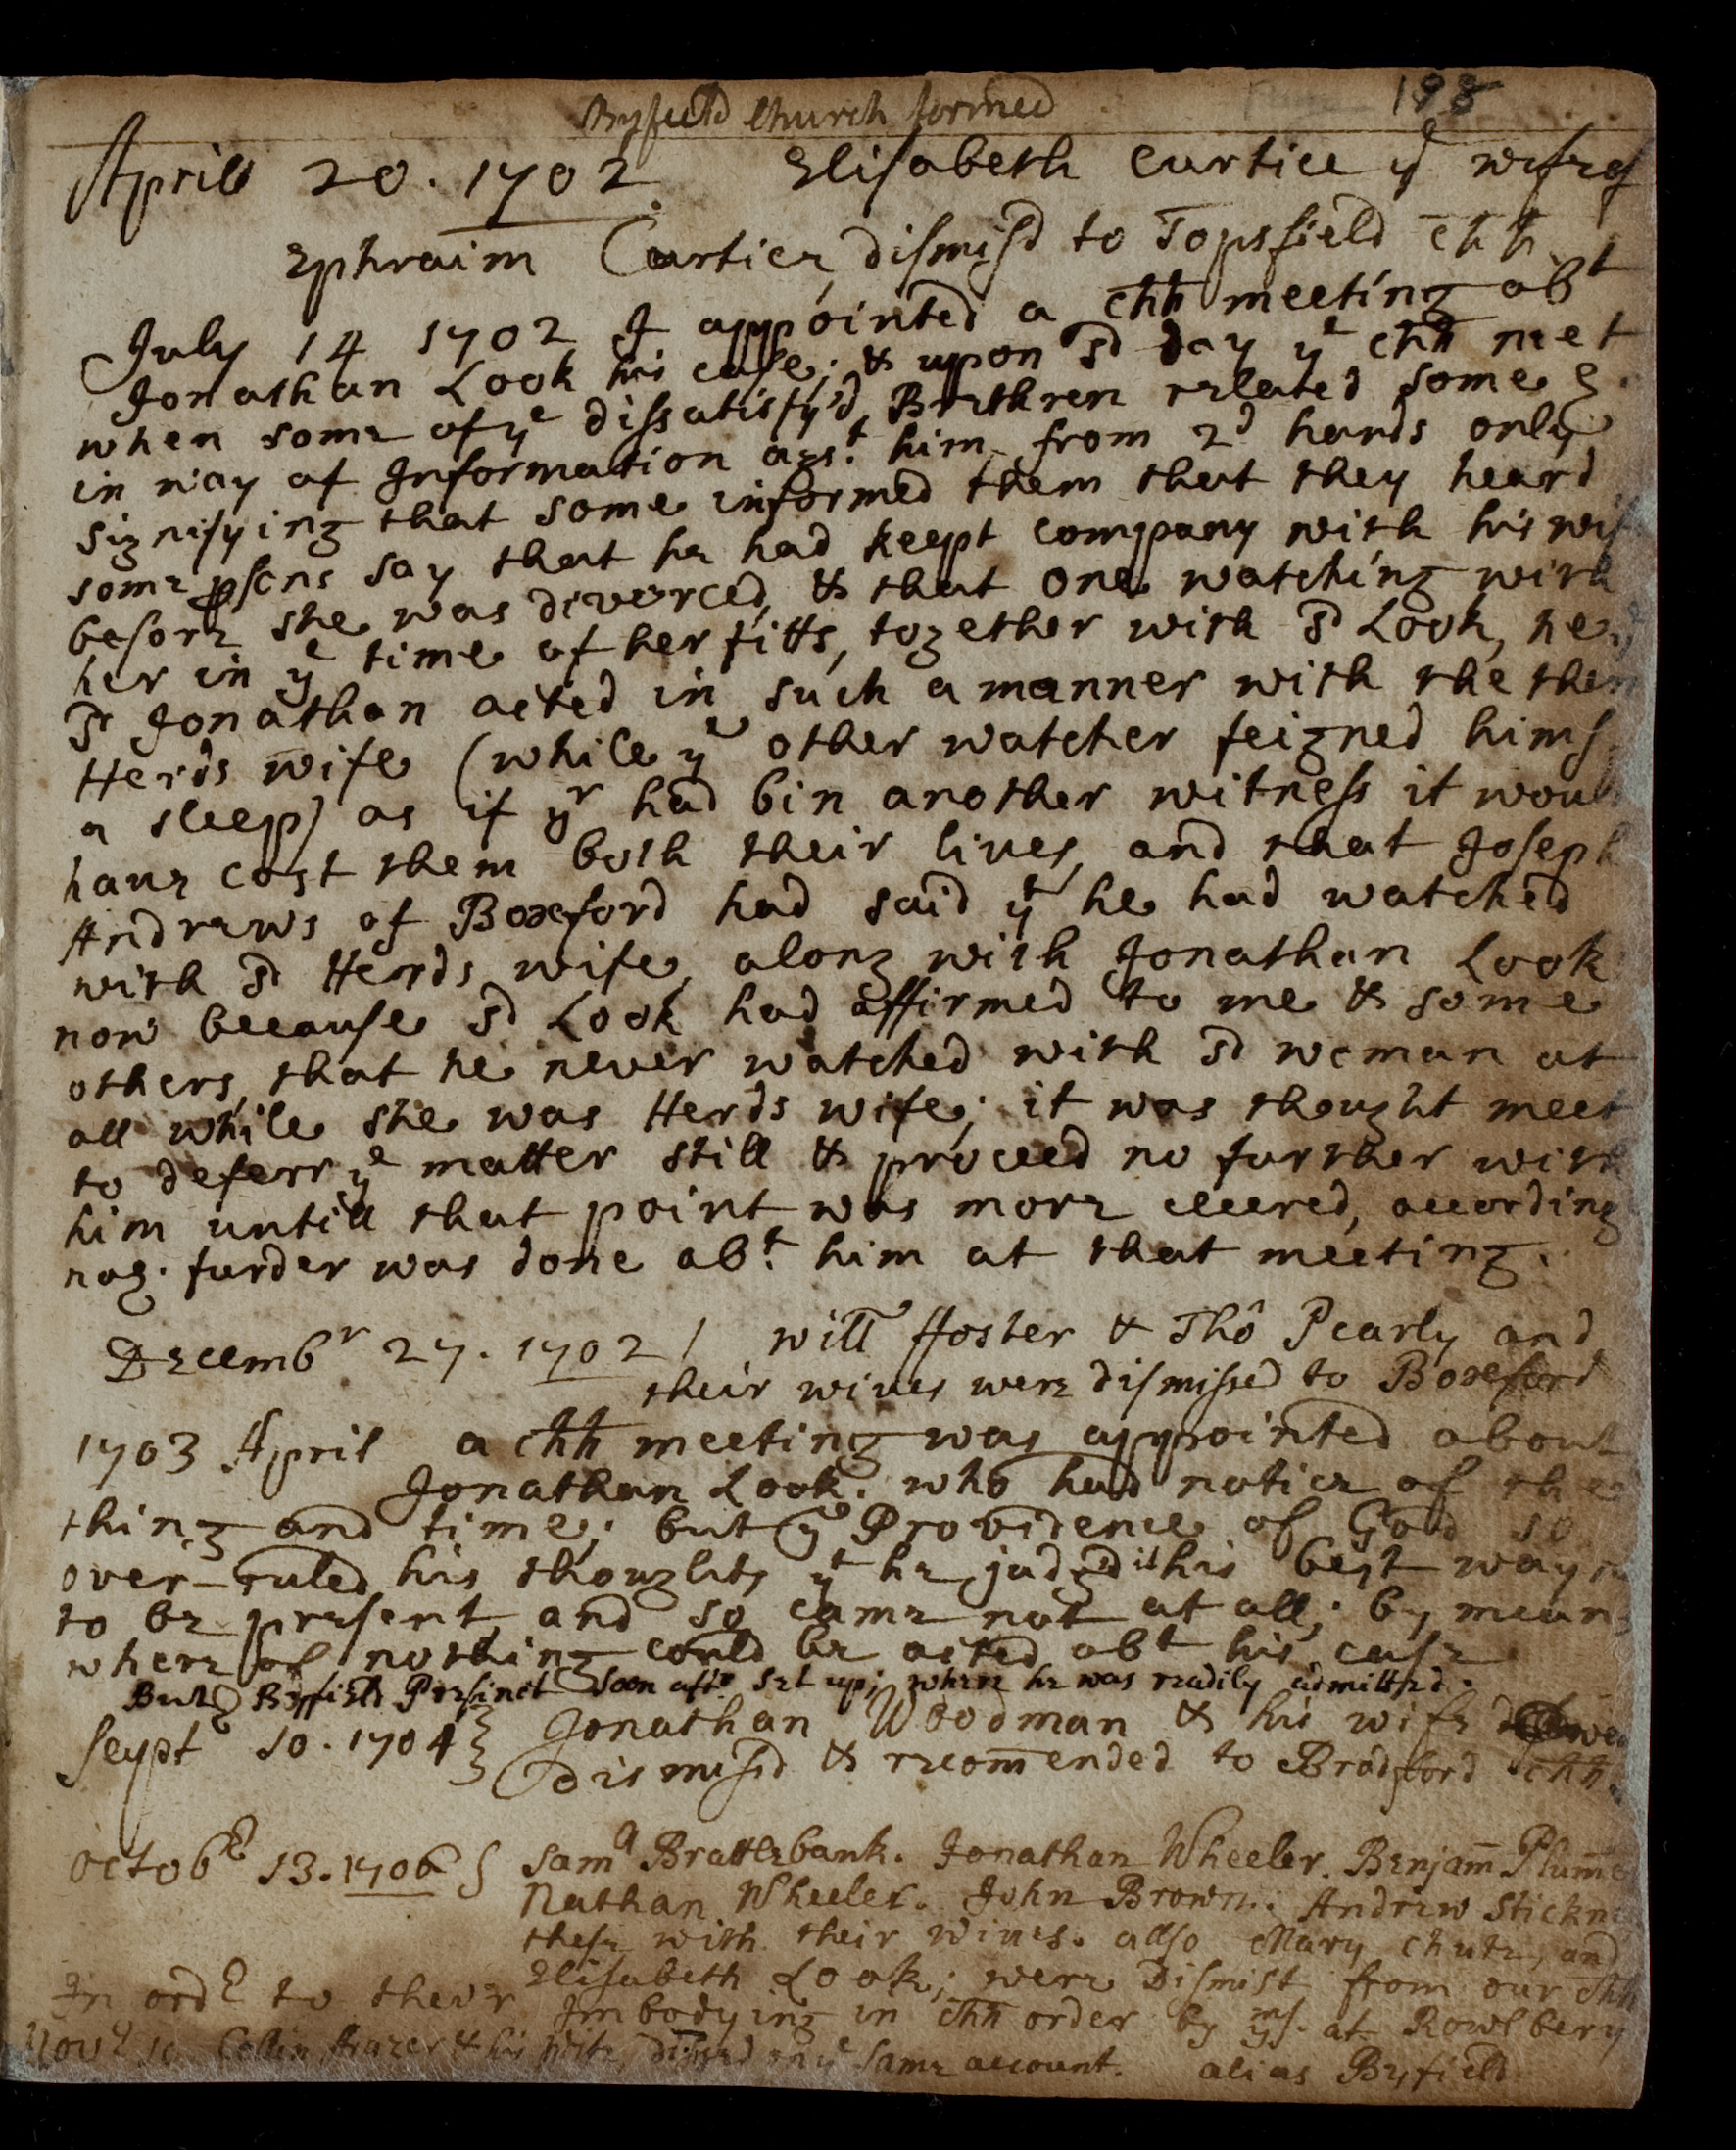 Byfield Church formed 198
Aprill 20. 1702. Elisabeth Curtice yͤ wife of
Ephraim Curtice, dismisd to Topsfield chh.
July 14 1702 I appointed a chh meeting abᵗ
Jonathan Look his case; & upon sd day yͤ chh met
when some of yͤ dissatisfy'd Brethren related some
in way of Information agsᵗ. him from 2d hands only
signifying that some informed them that they heard
some psons say that he had keept company with his wif
before she was divorced, & that one watching with
her in yͤ time of her fitts, together with sd Look, he
sd Jonathan acted in such a manner with the then
Herds wife (while yͤ other watcher feigned hims
a sleep) as if yʳ had bin another witness it would
haue cost them both their liues, and that Joseph
Andrews of Boxford had said yᵗ he had watched
with sd Herds wife, along with Jonathan Look
now because sd Look had affirmed to me & some
others, that he never watched with sd woman at
all while she was Herds wife; it was thought meet
to deferr yͤ matter still & proceed no further with
him untill that point was more cleered, according
nog. furder was done abᵗ. him at that meeting.
Decembʳ 27. 1702 / Will ffoster & Tho Pearly and
their wiues were dismissed to Boxford
1703 April a chh meeting was appointed about
Jonathan Look. who had notice of the
thing and time; but yͤ Providence of God so
over-ruled his thoughts yᵗ he judgd it his best way
to be present, and so came not at all; by means
where of nothing could be acted abᵗ his case
But Byfield Precinct soon aftr set up; where he was readily admitted.
Septʳ 10. 1704 } Jonathan Woodman & his wife
dismisd & recomended to Bradford chh.
Octobʳ 13. 1706 } Samˡˡ Brattlebank. Jonathan Wheeler. Benjam̅ Plum̅e
Nathan Wheeler. John Brown. Andrew Stickn
these with their wiues. allso Mary Chute, and
Elisabeth Look; were Dismist from our chh
In ordʳ to their Imbodying in chh order by yms. at Rowlbery
Novʳ 10 Collin frazer & his wife, dismd on yͤ same account. alias Byfield